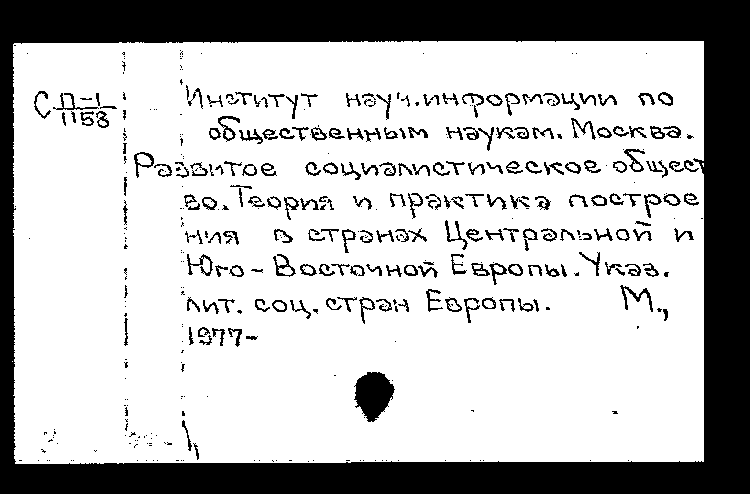 С П-1
1158
Институт науч.информации по
общественным наукам. Москва.
Развитое социалистическое общест
во. Теория и практика построе
ния в странах Центральной и
Юго-Восточной Европы. Указ.
лит. соц. стран Европы. М.,
1977-